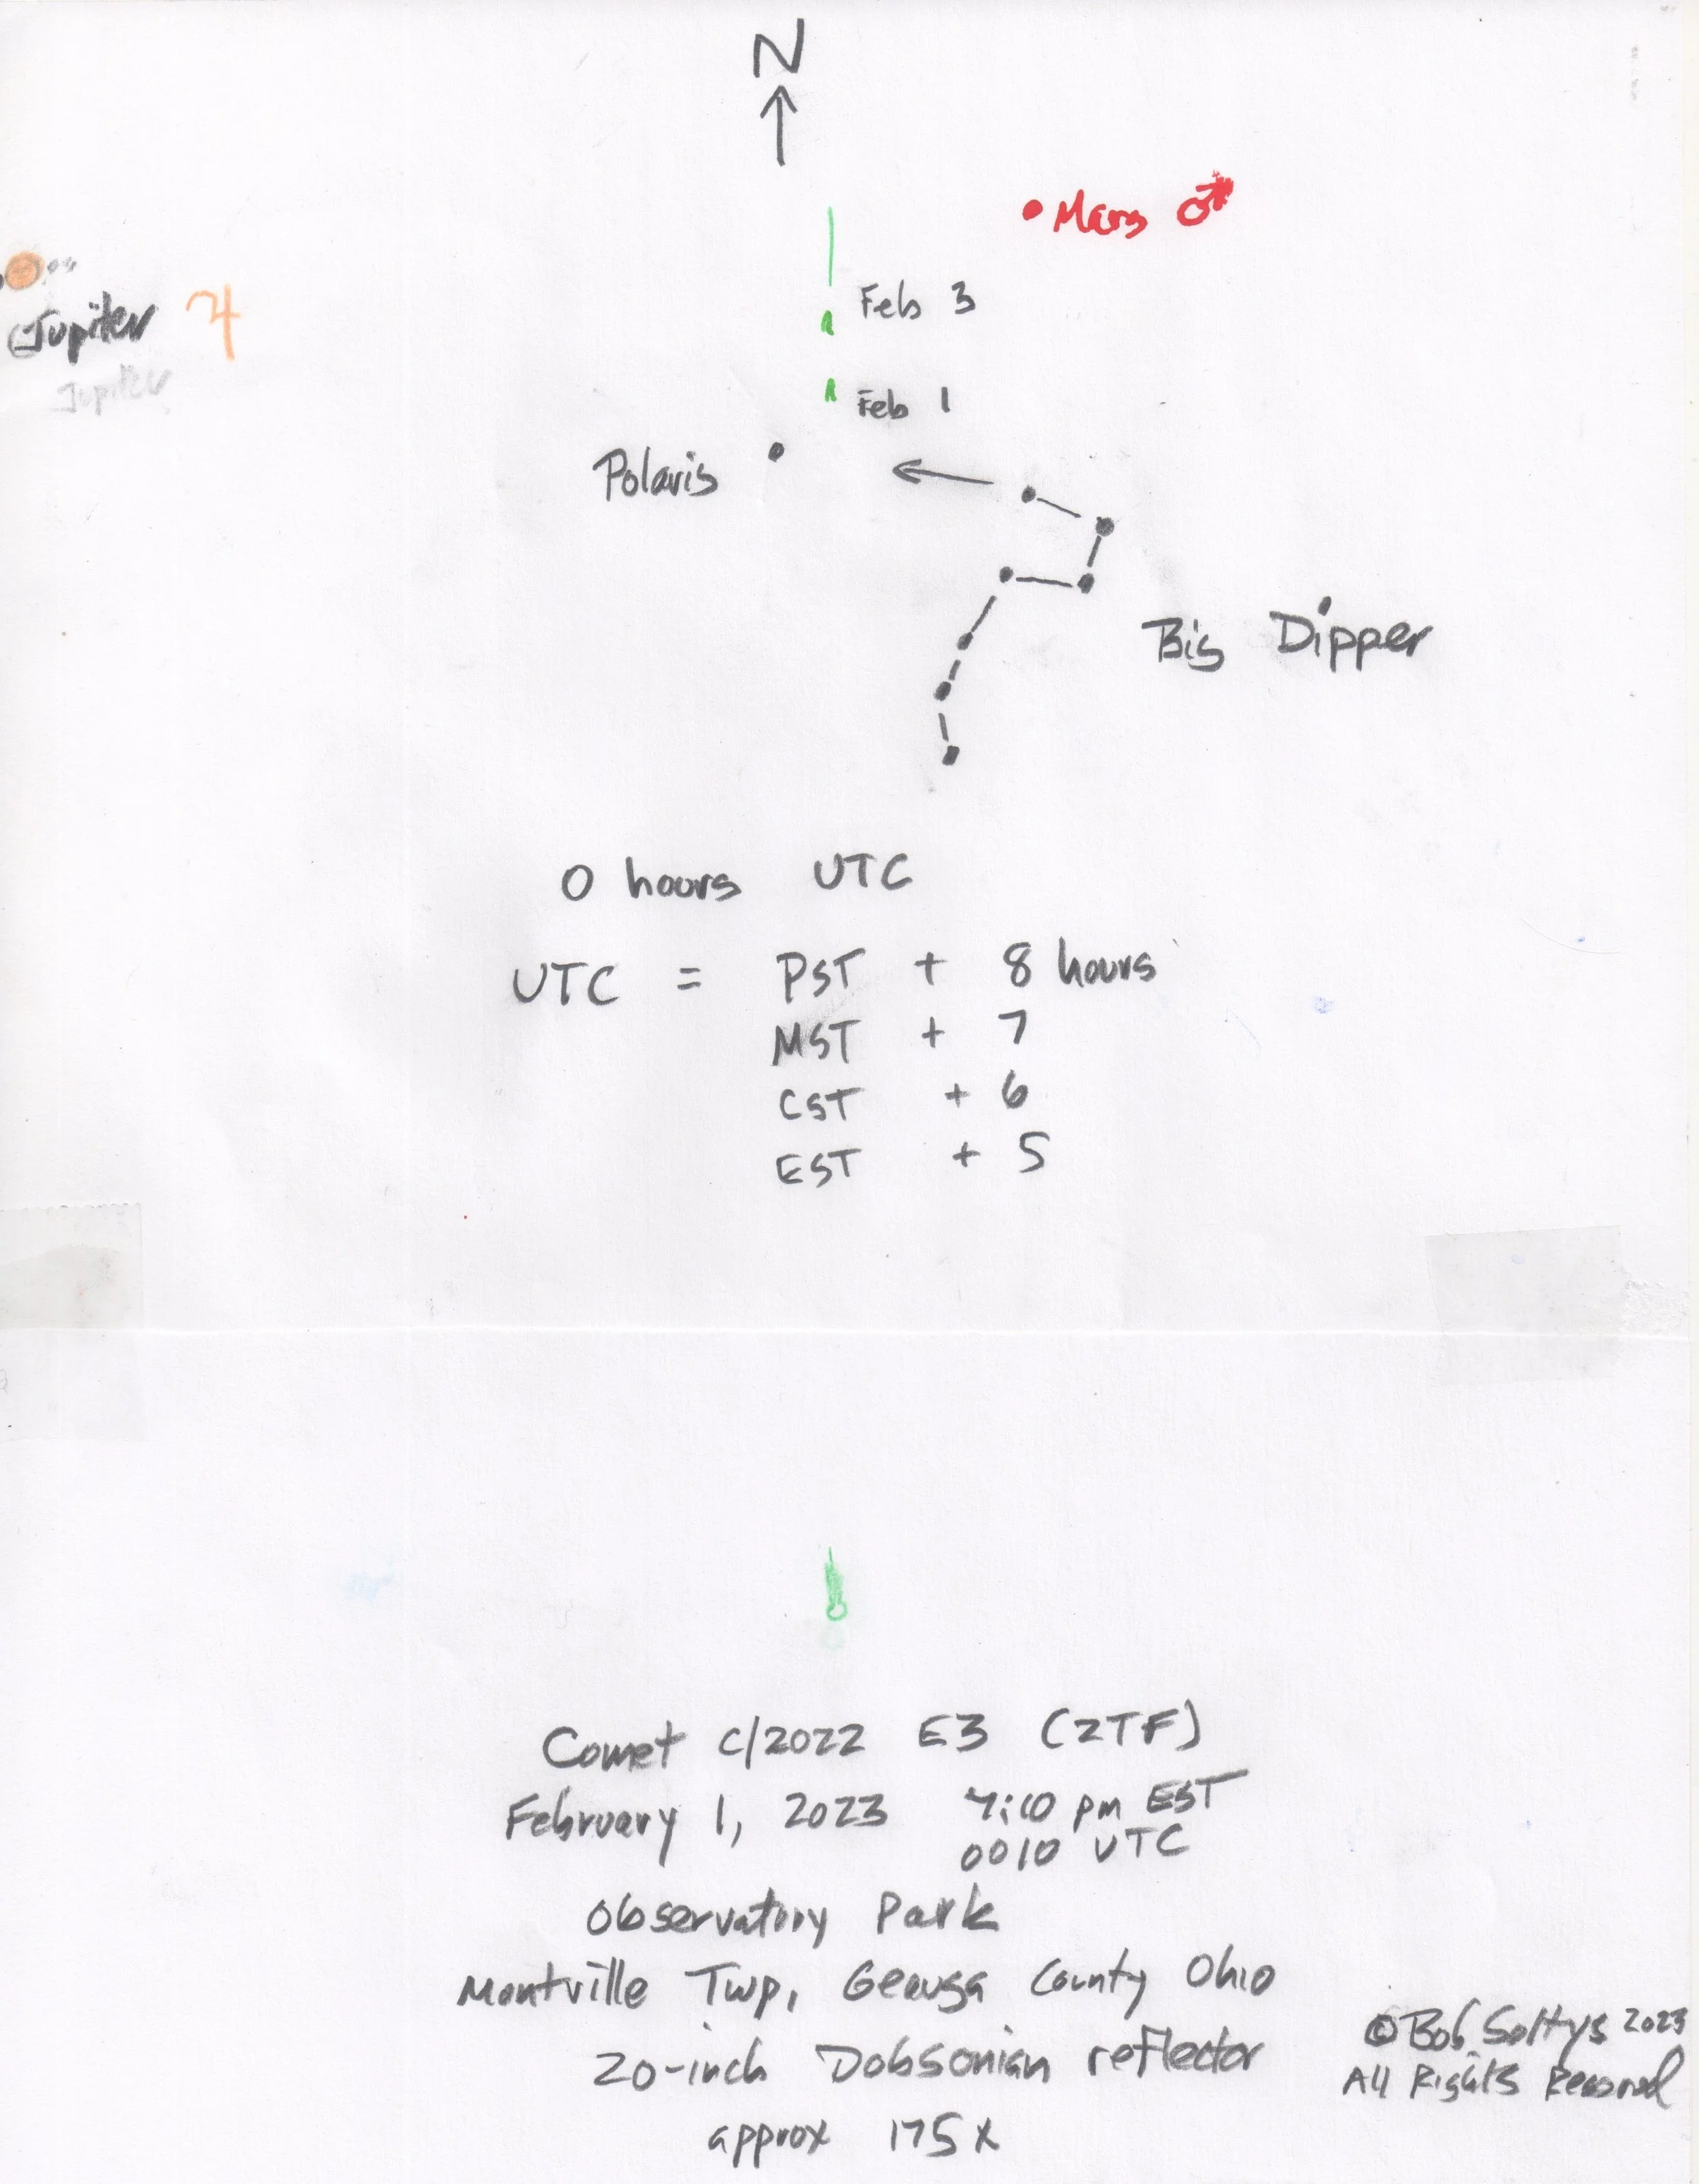 N
Mars ♂
Jupiter ♃
Jupiter
Feb 3
Feb 1
Polaris
Big Dipper
0 hours UTC
UTC = PST + 8 hours
MST + 7
CST + 6
EST + 5
Comet C/2022 E3 (ZTF)
February 1, 2023 7:10 pm EST
0010 UTC
Observatory Park
Montville Twp, Geauga County Ohio
20-inch Dobsonian reflector
approx 175x
©Bob Soltys 2023
All Rights Reserved